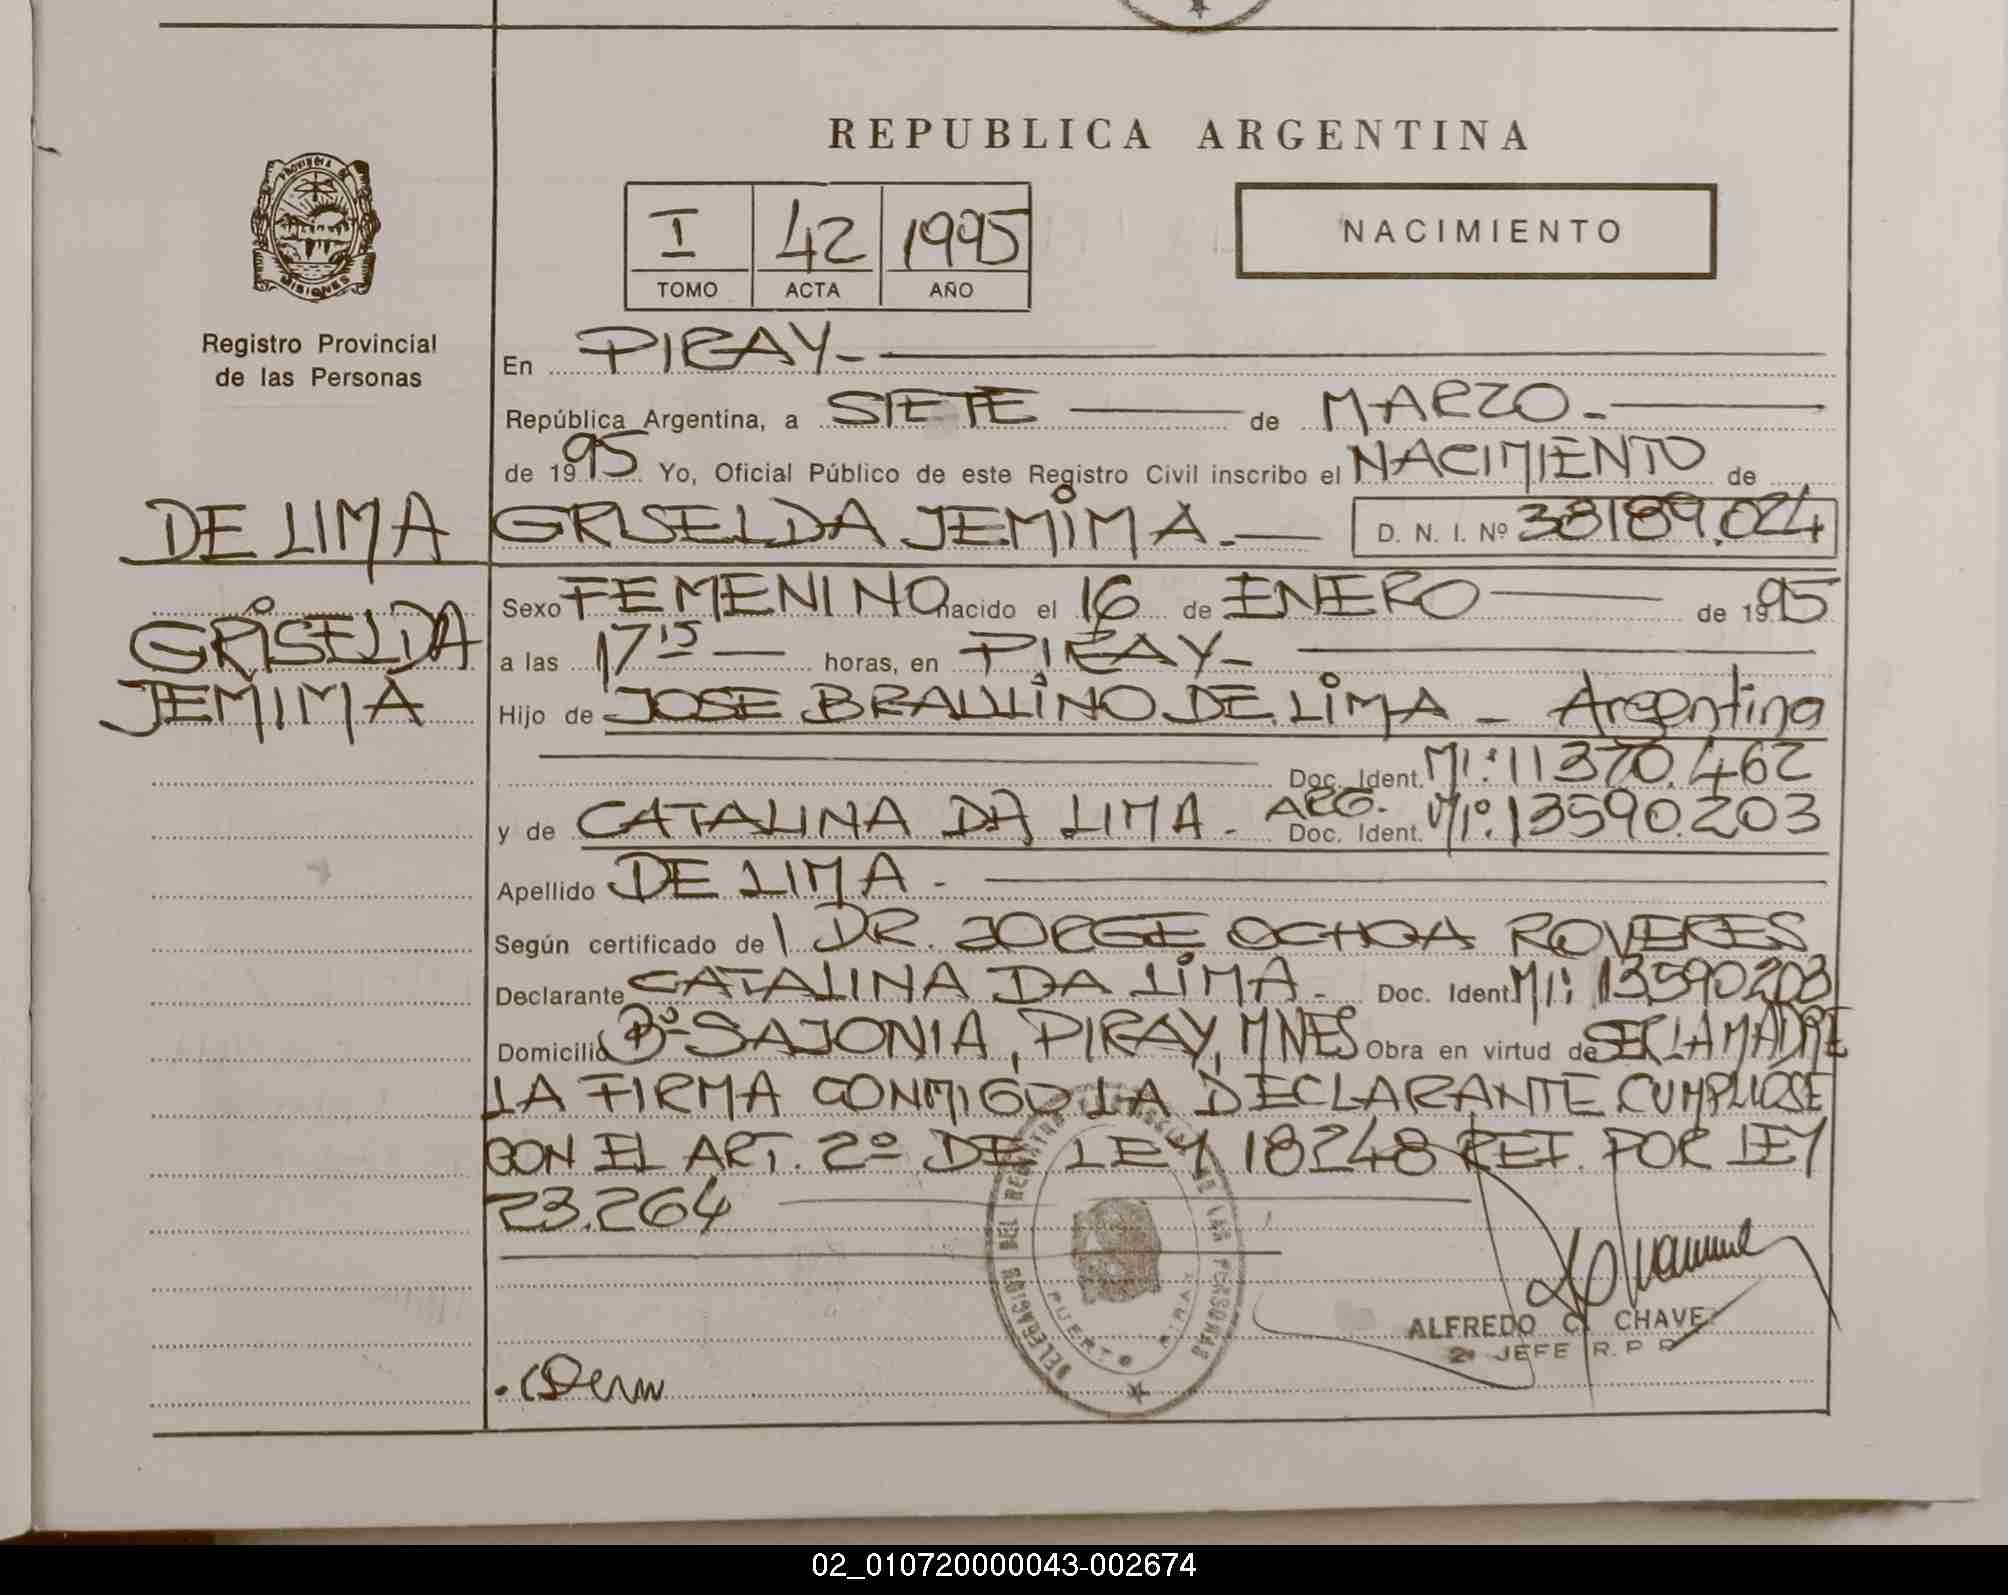 REPUBLICA ARGENTINA
PROVINCIA DE
MISIONES
I 42 1995
TOMO ACTA AÑO
NACIMIENTO
Registro Provincial
de las Personas
En PIRAY-
República Argentina, a SIETE de MARZO-
de 1995 Yo, Oficial Público de este Registro Civil inscribo el NACIMIENTO de
DE LIMA
GRISELDA JEMIMA.- D. N. I. Nº 38189.024
GRISELDA
JEMIMA
Sexo FEMENINO nacido el 16 de ENERO de 1995
a las 17 15 horas, en PIRAY-
Hijo de JOSE BRAULINO DE LIMA - Argentino
Doc. Ident. MI: 11370.462
y de CATALINA DA LIMA - ARG. Doc. Ident. MIº. 13590.203
Apellido DE LIMA -
Según certificado de l DR. JORGE OCHOA ROVERES
Declarante CATALINA DA LIMA - Doc. Ident MI: 13590203
Domicilio Bº SAJONIA, PIRAY, MNES Obra en virtud de SER LA MADRE
LA FIRMA CONMIGO LA DECLARANTE CUMPLIOSE
CON EL ART. 2º DE LEY 18248 REF. POR LEY
23.264
DELEGACION DEL REGISTRO DE LAS PERSONAS
PUERTO PIRAY
ALFREDO C. CHAVE
2º JEFE R. P. P.
02_010720000043-002674